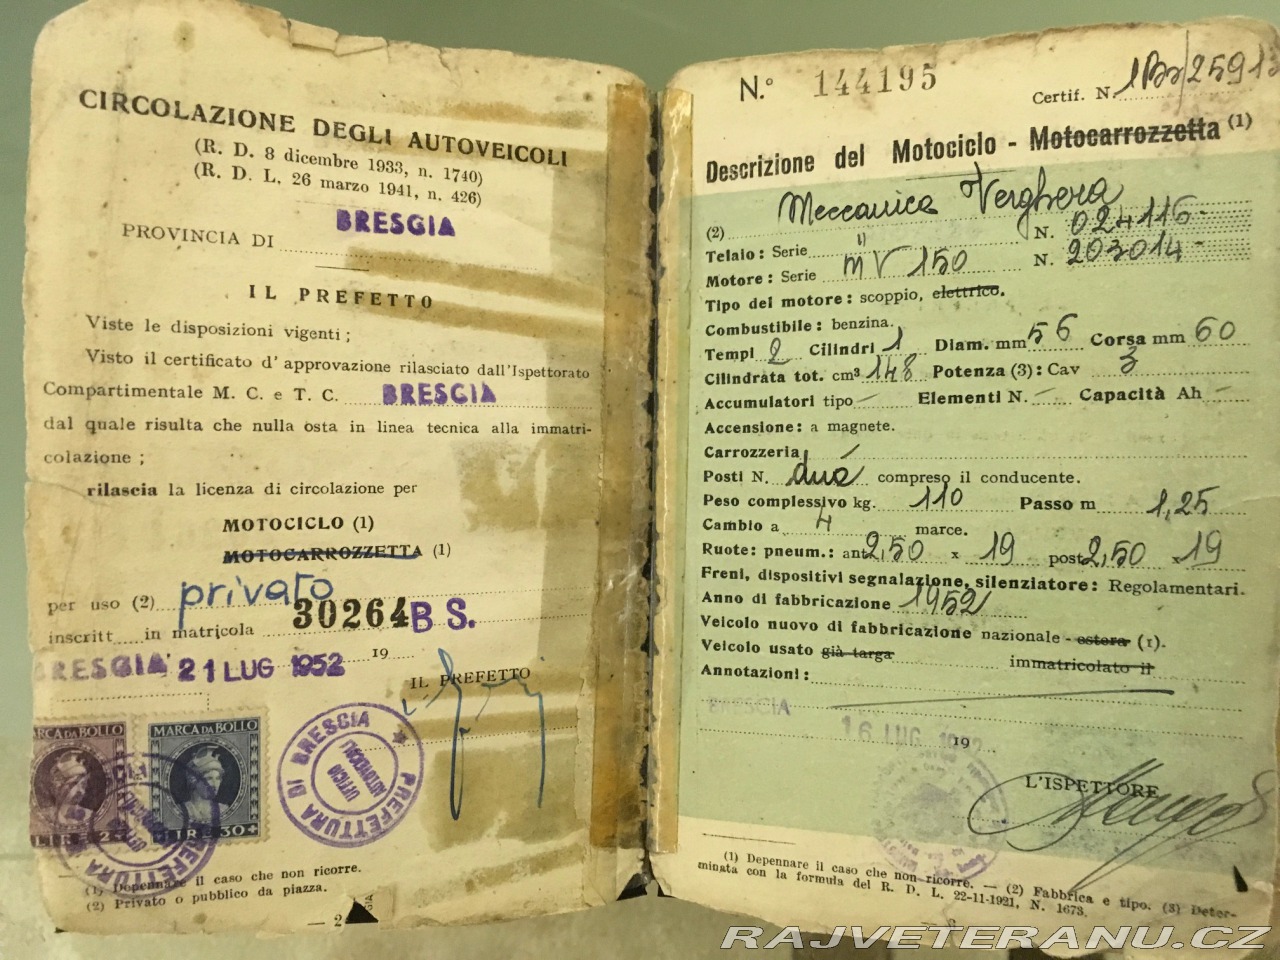 CIRCOLAZIONE DEGLI AUTOVEICOLI
(R. D. 8 dicembre 1933, n. 1740)
(R. D. L. 26 marzo 1941, n. 426)
PROVINCIA DI BRESCIA
IL PREFETTO
Viste le disposizioni vigenti ;
Visto il certificato d' approvazione rilasciato dall'Ispettorato
Compartimentale M. C. e T. C. BRESCIA
dal quale risulta che nulla osta in linea tecnica alla immatri-
colazione ;
rilascia la licenza di circolazione per
MOTOCICLO (1)
MOTOCARROZZETTA (1)
per uso (2) privato
inscritt in matricola 30264 BS.
BRESCIA 21 LUG 1952 19
IL PREFETTO
MARCA DA BOLLO MARCA DA BOLLO
LIRE 30+
PREFETTURA DI BRESCIA
UFFICIO
AUTOVEICOLI
(1) Depennare il caso che non ricorre.
(2) Privato o pubblico da piazza.
— 2
N.° 144195
Certif. N. 1Br/25913
Descrizione del Motociclo - Motocarrozzetta (1)
(2) Meccanica Verghera
Telaio: Serie " N. 024116
Motore: Serie MV 150 N. 203014
Tipo del motore: scoppio, elettrico.
Combustibile: benzina.
Tempi 2 Cilindri 1 Diam. mm 56 Corsa mm 60
Cilindrata tot. cm³ 148 Potenza (3): Cav 3
Accumulatori tipo — Elementi N. — Capacità Ah —
Accensione: a magnete.
Carrozzeria
Posti N. due compreso il conducente.
Peso complessivo kg. 110 Passo m 1,25
Cambio a 4 marce.
Ruote: pneum.: ant 2,50 x 19 post 2,50 x 19
Freni, dispositivi segnalazione, silenziatore: Regolamentari.
Anno di fabbricazione 1952
Veicolo nuovo di fabbricazione nazionale - estera (1).
Veicolo usato già targa immatricolato il
Annotazioni:
BRESCIA 16 LUG. 1952 19
L'ISPETTORE
(1) Depennare il caso che non ricorre. — (2) Fabbrica e tipo. (3) Deter-
minata con la formula del R. D. L. 22-11-1921, N. 1673.
RAJVETERANU.CZ